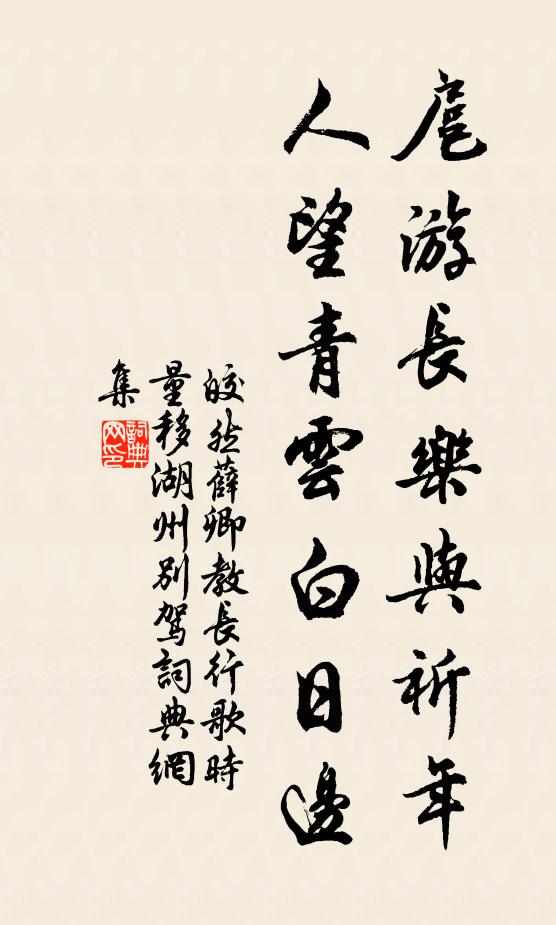 扈游長樂與祈年
人望青雲白日邊
皎然薛卿教長行歌時
量移湖州別駕詞典網
集
詞典
网印